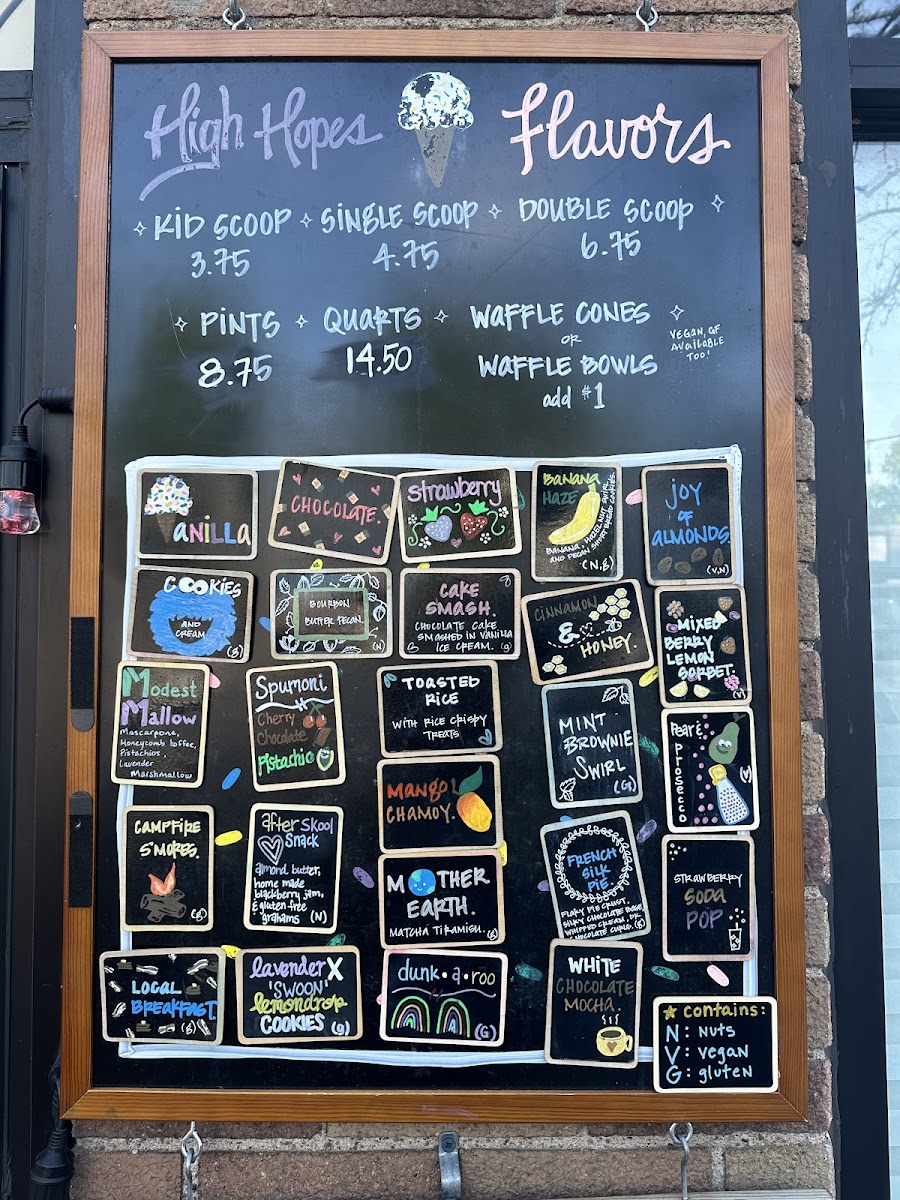 High Hopes Flavors
KID SCOOP
3.75
SINGLE SCOOP
4.75
DOUBLE SCOOP
6.75
PINTS
8.75
QUARTS
14.50
WAFFLE CONES
OR
WAFFLE BOWLS
add $1
VEGAN, GF
AVAILABLE
TOO!
ANILLA
CHOCOLATE.
strawberry
BANANA
HAZE
BANANA, HAZELNUT SWIRL,
AND PECAN SHORTBREAD COOKIES.
(N,g)
JOY
OF
ALMONDS.
(V,N)
COOKIES
AND
CREAM
(g)
BOURBON
BUTTER PECAN.
(N)
CAKE
SMASH.
CHOCOLATE CAKE
SMASHED IN VANILLA
ICE CREAM. (g)
CINNAMON
&
HONEY.
MIXED
BERRY
LEMON
SORBET.
(V)
Modest
Mallow
Mascarpone,
Honeycomb toffee,
Pistachios,
Lavender
Marshmallow
Spumoni
Cherry
Chocolate
Pistachio
TOASTED
RICE
WITH RICE CRISPY
TREATS
MINT
BROWNIE
SWIRL
(G)
Pear &
Prosecco
(V)
CAMPFIRE
S'MORES.
(g)
after Skool
Snack
almond butter,
home made
blackberry jam,
& gluten free
grahams (N)
Mango
CHAMOY.
MOTHER
EARTH.
MATCHA TIRAMISU. (g)
FRENCH
SILK
PIE.
FLAKY PIE CRUST,
SILKY CHOCOLATE BASE
WHIPPED CREAM, DK.
CHOCOLATE CURLS. (g)
STRAWBERRY
SODA
POP
LOCAL
BREAKFAST.
(g)
lavender X
'SWOON'
lemondrop
COOKIES (g)
dunk•a•roo
(G)
WHITE
CHOCOLATE
MOCHA.
contains:
N: nuts
V: vegan
G: gluten